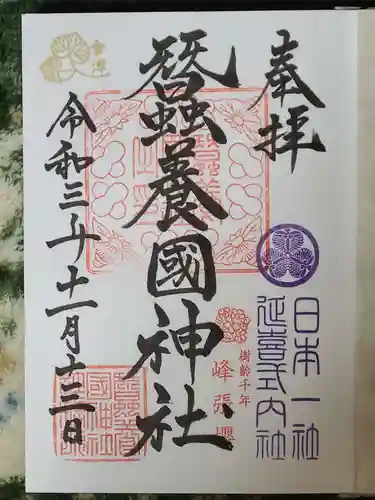 奉拝
日本一社
延喜式内社
樹齢千年
峰張桜
蠶養國神社
令和三年十一月十三日